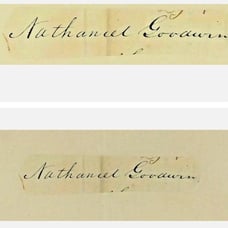 Nathaniel Goodwin
Nathaniel Goodwin